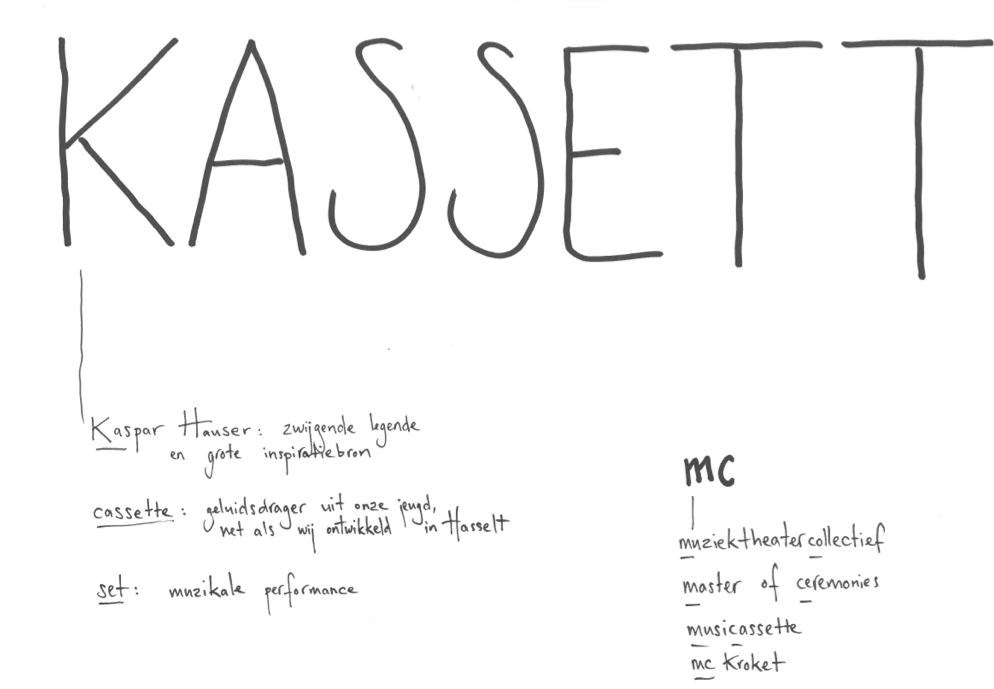 KASSETT
Kaspar Hauser: zwijgende legende
en grote inspiratiebron
cassette: geluidsdrager uit onze jeugd,
net als wij ontwikkeld in Hasselt
set: muzikale performance
mc
muziektheatercollectief
master of ceremonies
musicassette
mc Kroket